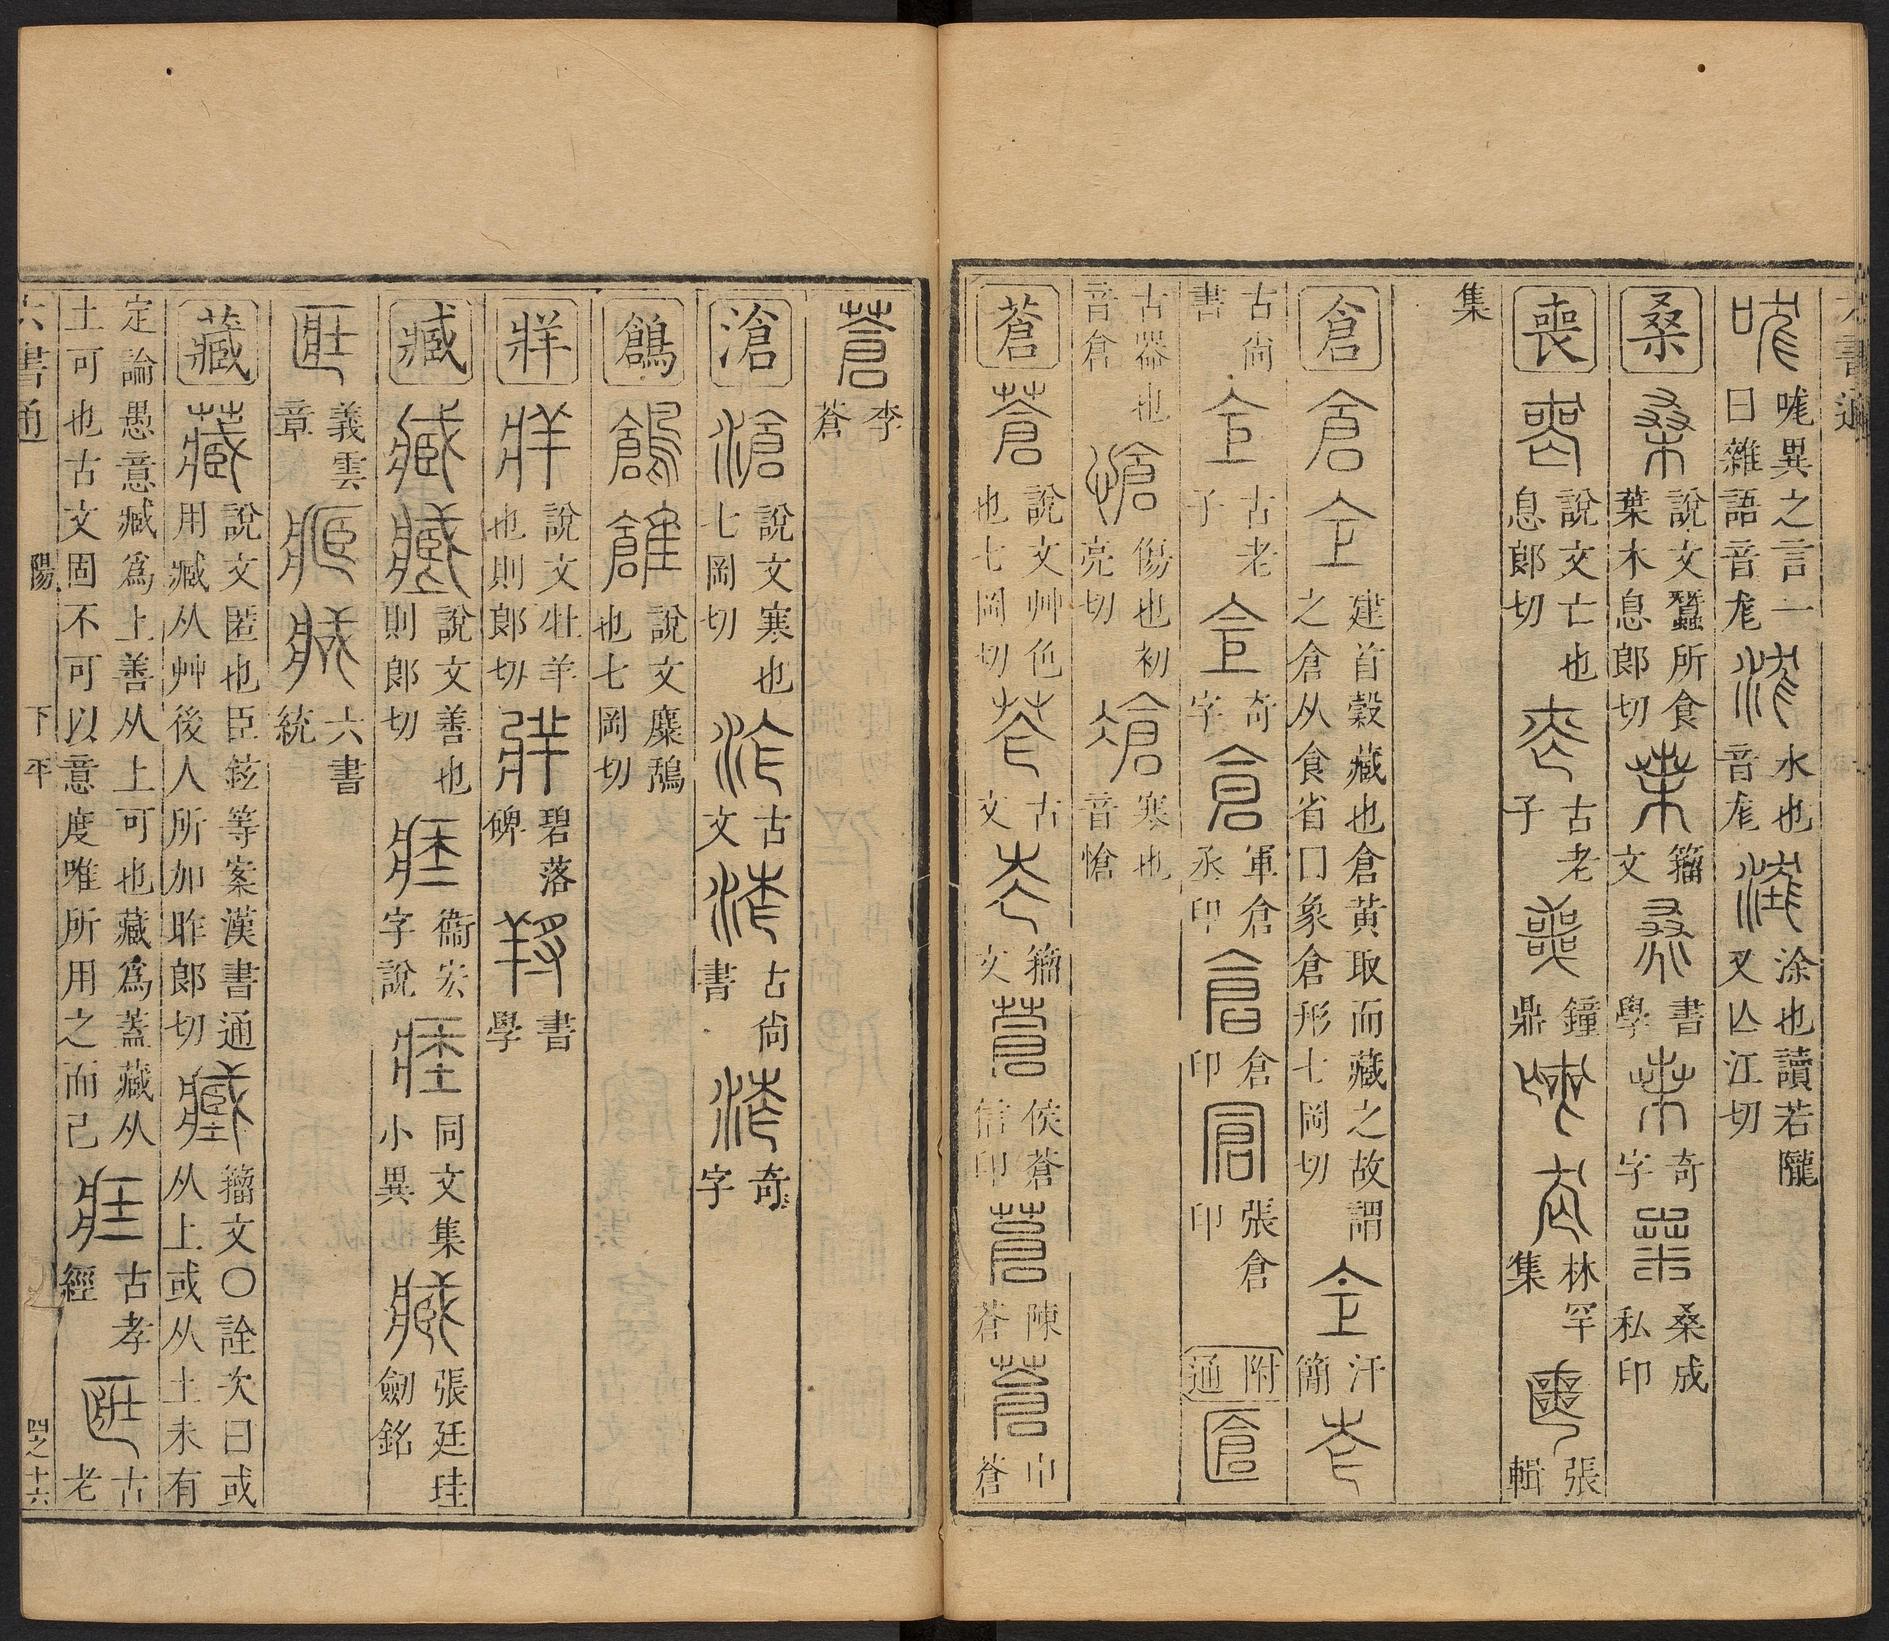 哤異之言一曰雜語音尨 水也音尨 涂也讀若隴又亾江切
桑 說文蠶所食葉木息郎切 籀文 書學 奇字 桑成私印
喪 說文亡也息郎切 古老子 鐘鼎 林罕集 張輯
集
倉 建首穀藏也倉黃取而藏之故謂之倉从食省囗象倉形七岡切 汗簡
古尙書 古老子 奇字 軍倉丞印 倉印 張倉印 附通
古器也音倉 傷也初亮切 寒也音愴
蒼 說文艸色也七岡切 古文 籀文 侯蒼信印 陳蒼 巾蒼
蒼 李蒼
滄 說文寒也七岡切 古文 古尙書 奇字
鶬 說文麋鴰也七岡切
牂 說文牡羊也則郎切 碧落碑 書學
臧 說文善也則郎切 衞宏字說 同文集小異 張廷珪劍銘
義雲章 六書統
藏 說文匿也臣鉉等案漢書通用臧从艸後人所加昨郎切 籀文〇詮次曰或从上或从土未有
定論愚意臧爲上善从上可也藏爲蓋藏从土可也古文固不可以意度唯所用之而己 古孝經 古老
六書通 陽 下平 四之十六